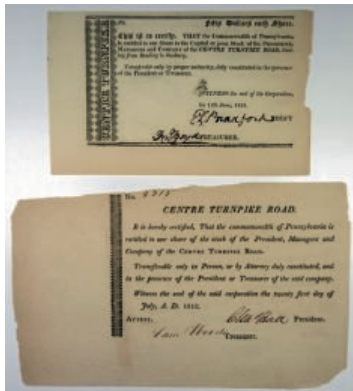 No.
Fifty Dollars each Share.
CENTRE TURNPIKE
This is to certify, THAT the Commonwealth of Pennsylvania,
is entitled to one Share in the Capital or joint Stock of the President,
Managers and Company of the CENTRE TURNPIKE ROAD,
ing from Reading to Sunbury.
Transferable only by proper authority, duly constituted in the presence
of the President or Treasurer.
WITNESS the seal of the Corporation,
the 11th June, 1811.
TREASURER.
No.
CENTRE TURNPIKE ROAD.
It is hereby certified, That the commonwealth of Pennsylvania is
entitled to one share of the stock of the President, Managers and
Company of the CENTRE TURNPIKE ROAD.
Transferable only in Person, or by Attorney duly constituted, and
in the presence of the President or Treasurer of the said company.
Witness the seal of the said corporation the twenty first day of
July, A. D. 1813.
ATTEST,
President.
Treasurer.